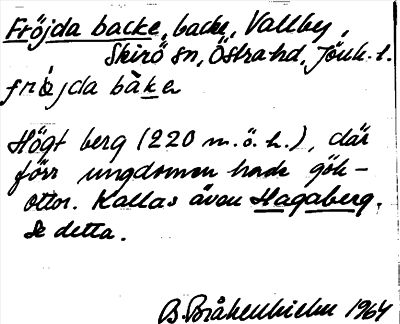 Fröjda backe, backe, Vallby,
Skirö sn, Östra hd, Jönk. l.
frö̀jda bàkе
Högt berg (220 m.ö.h.), där
förr ungdomen hade gök-
ottor. Kallas även Hagaberg.
Se detta.
B. Bråkenhielm 1964